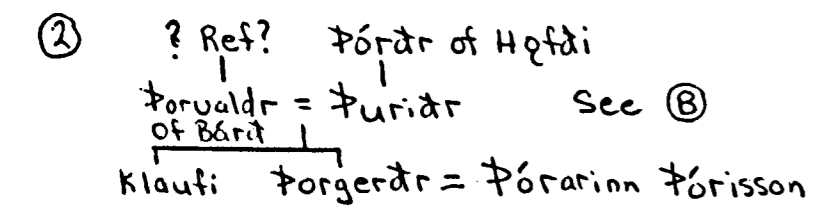 ② ? Ref? Þórðr of Hǫfði
Þorvaldr = Þuriðr See Ⓑ
of Bárð
Klaufi Þorgerðr = Þórarinn Þórisson